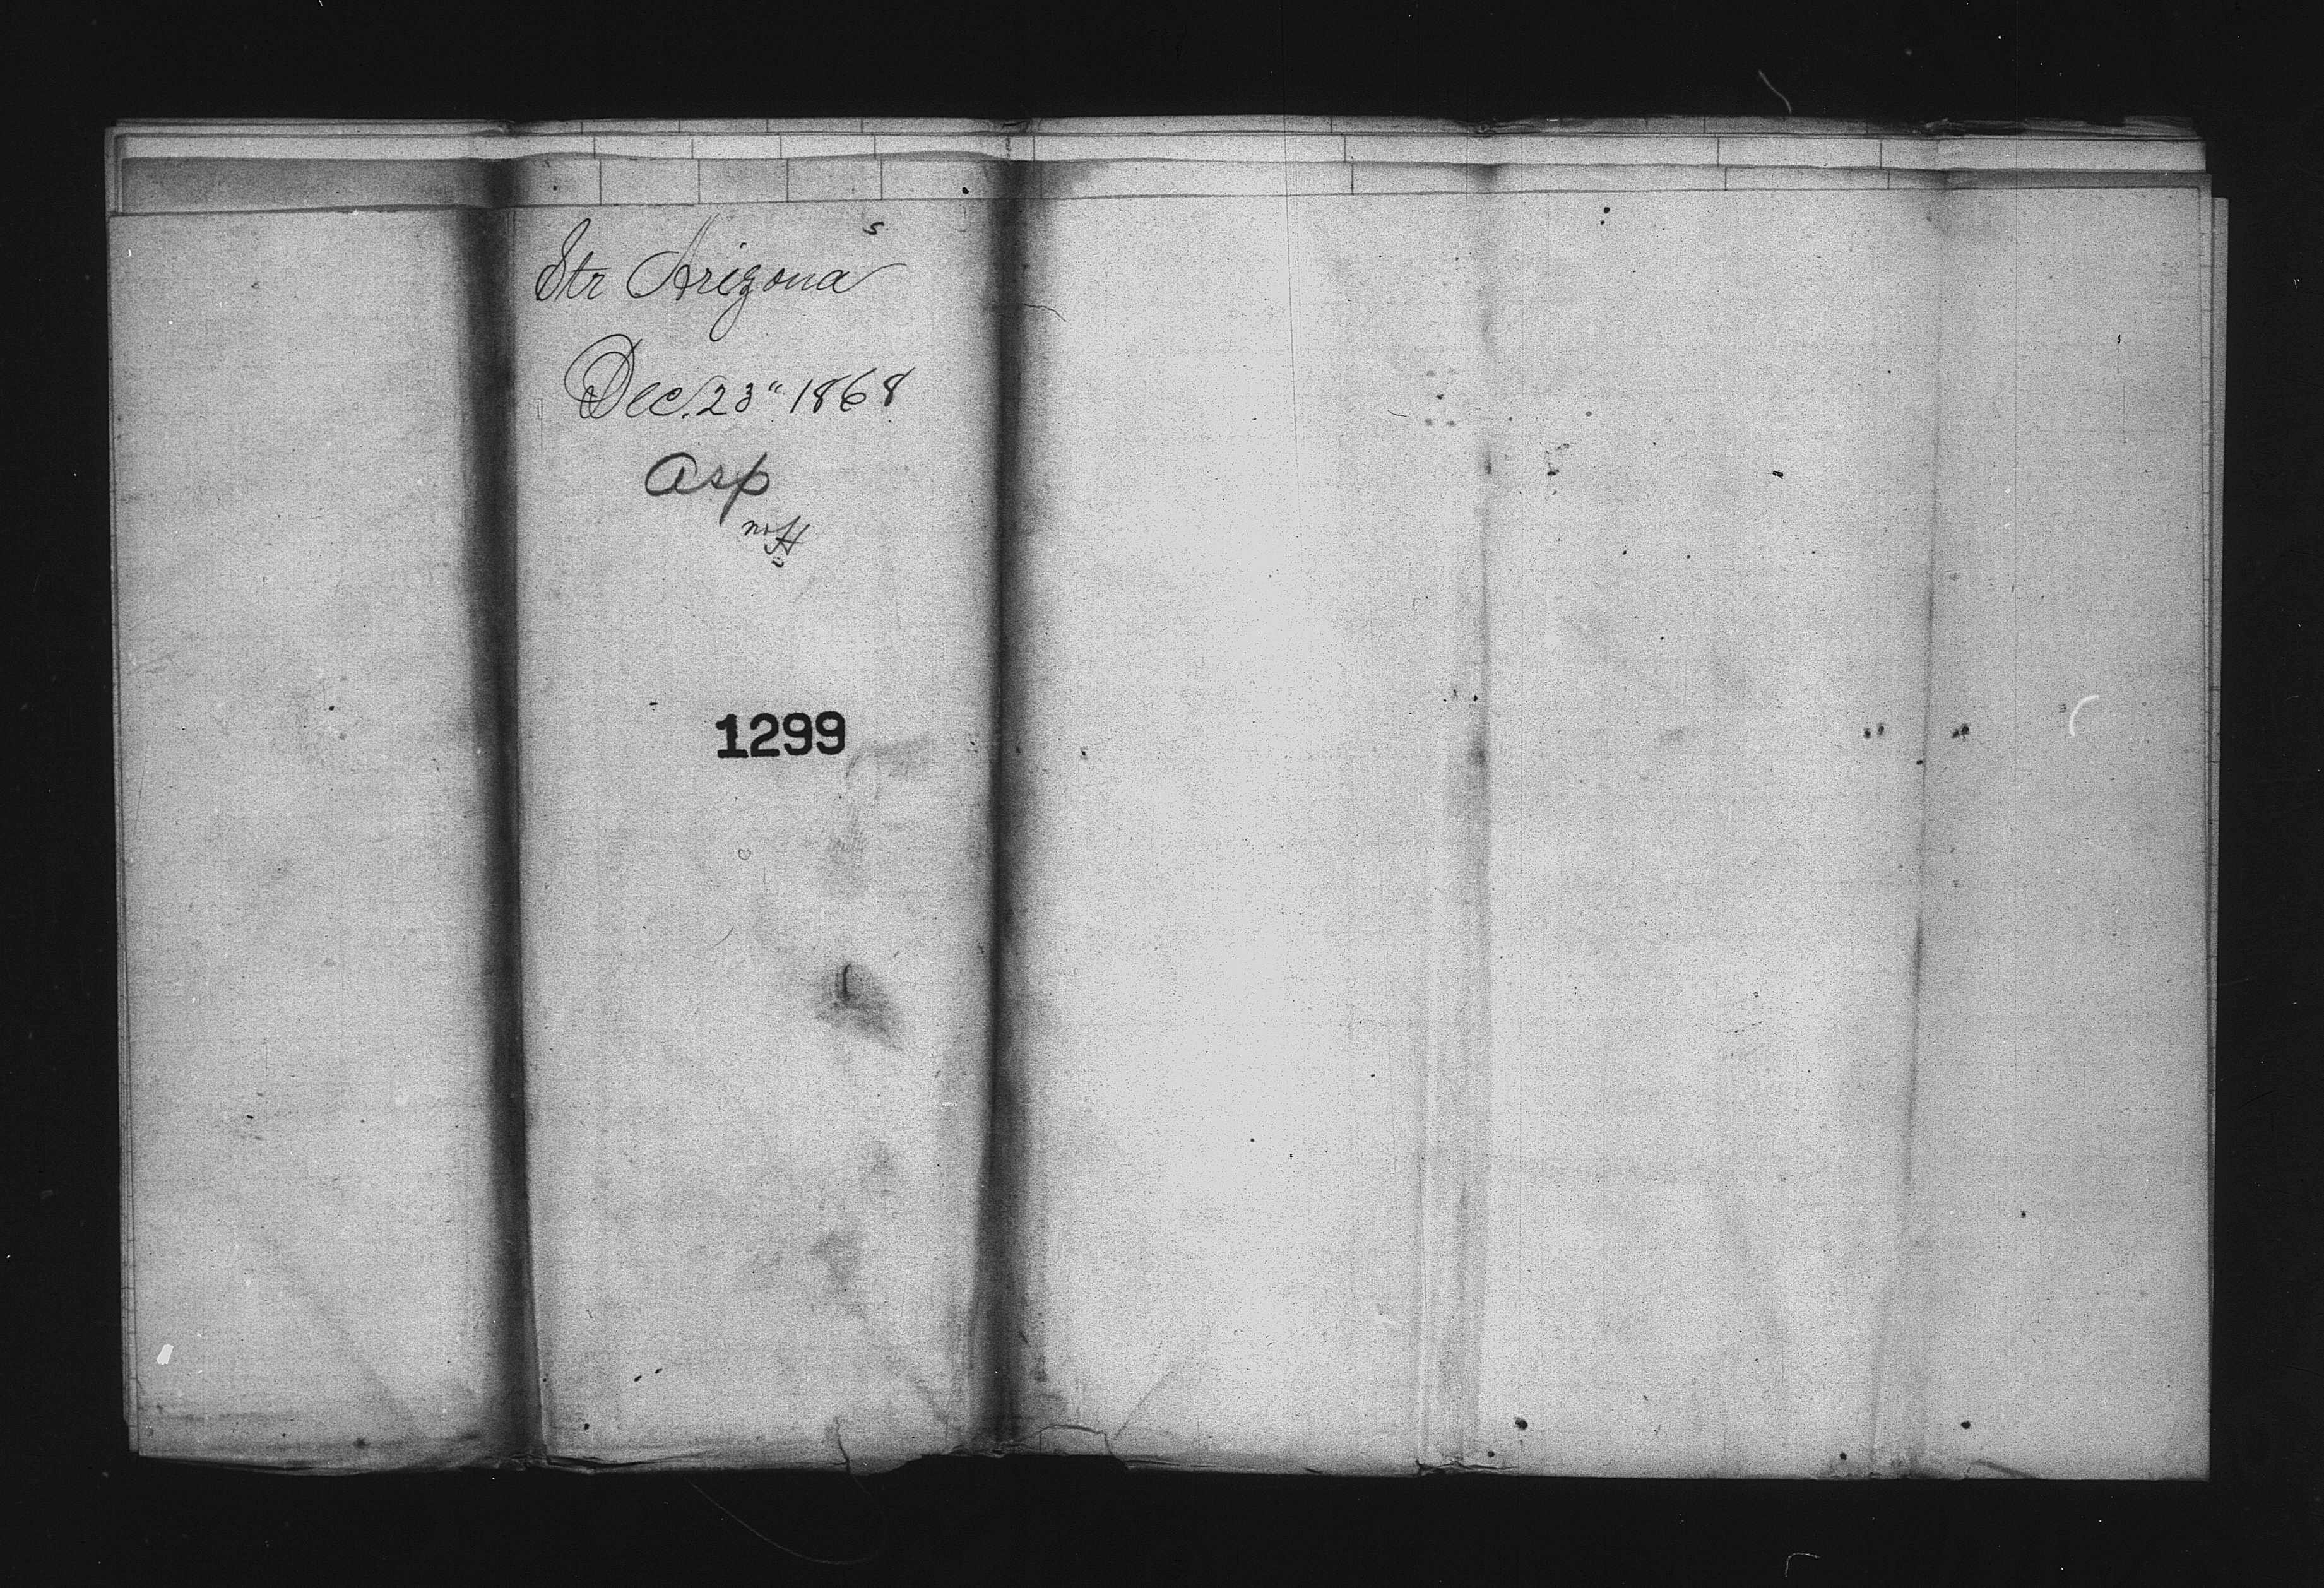 s
Str Arizona
Dec. 23" 1868
Asp
1299